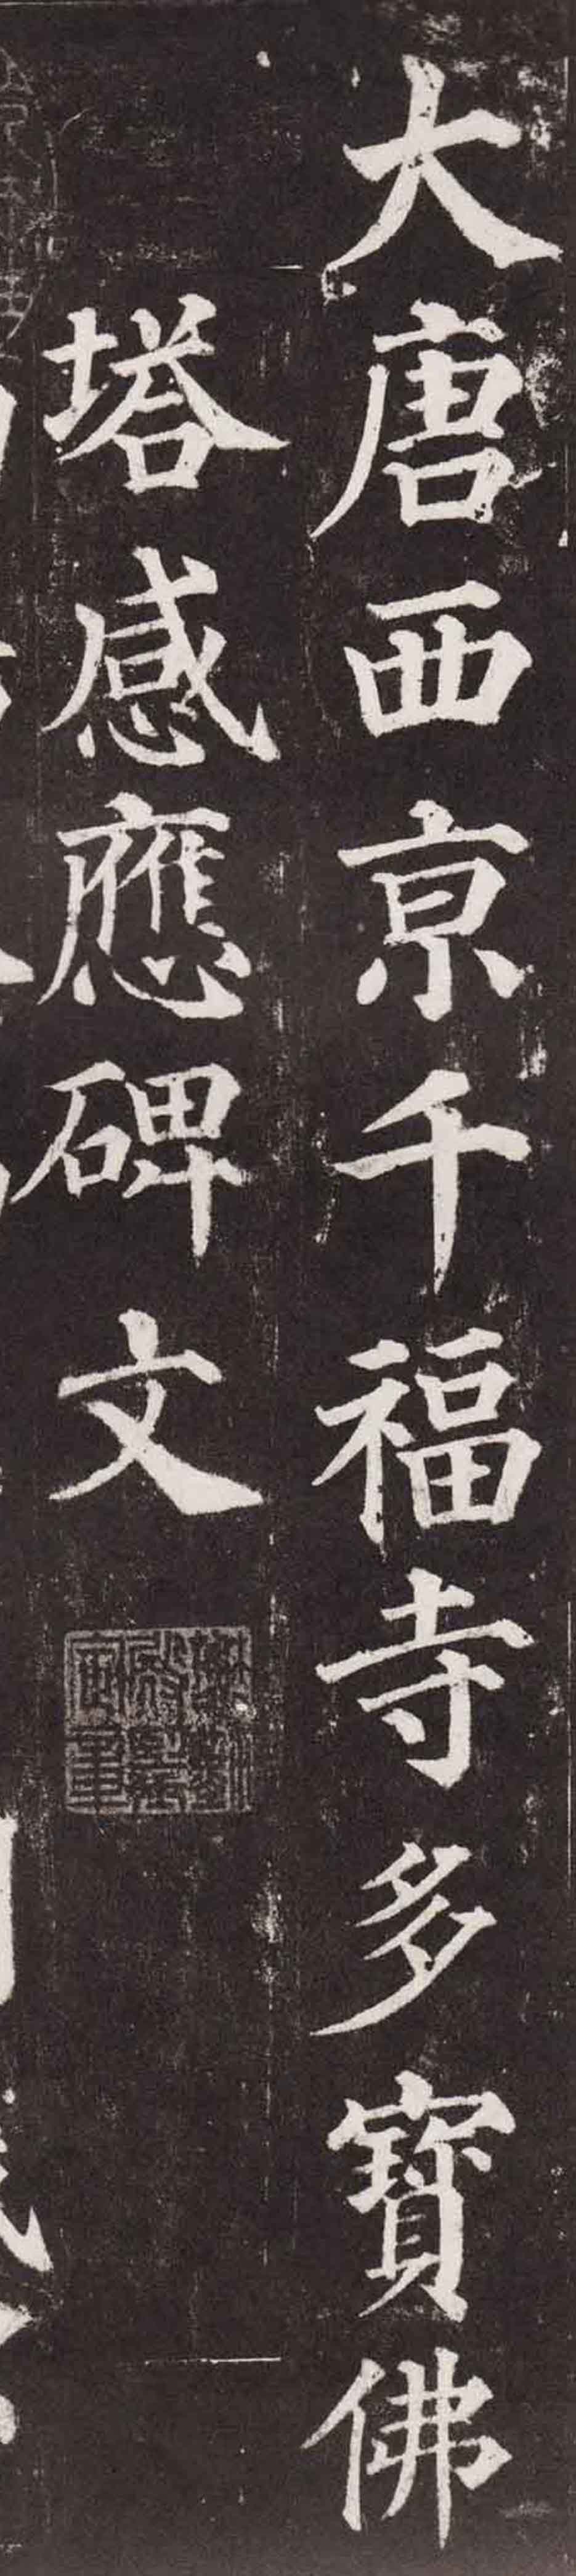 大唐西京千福寺多寳佛
塔感應碑文